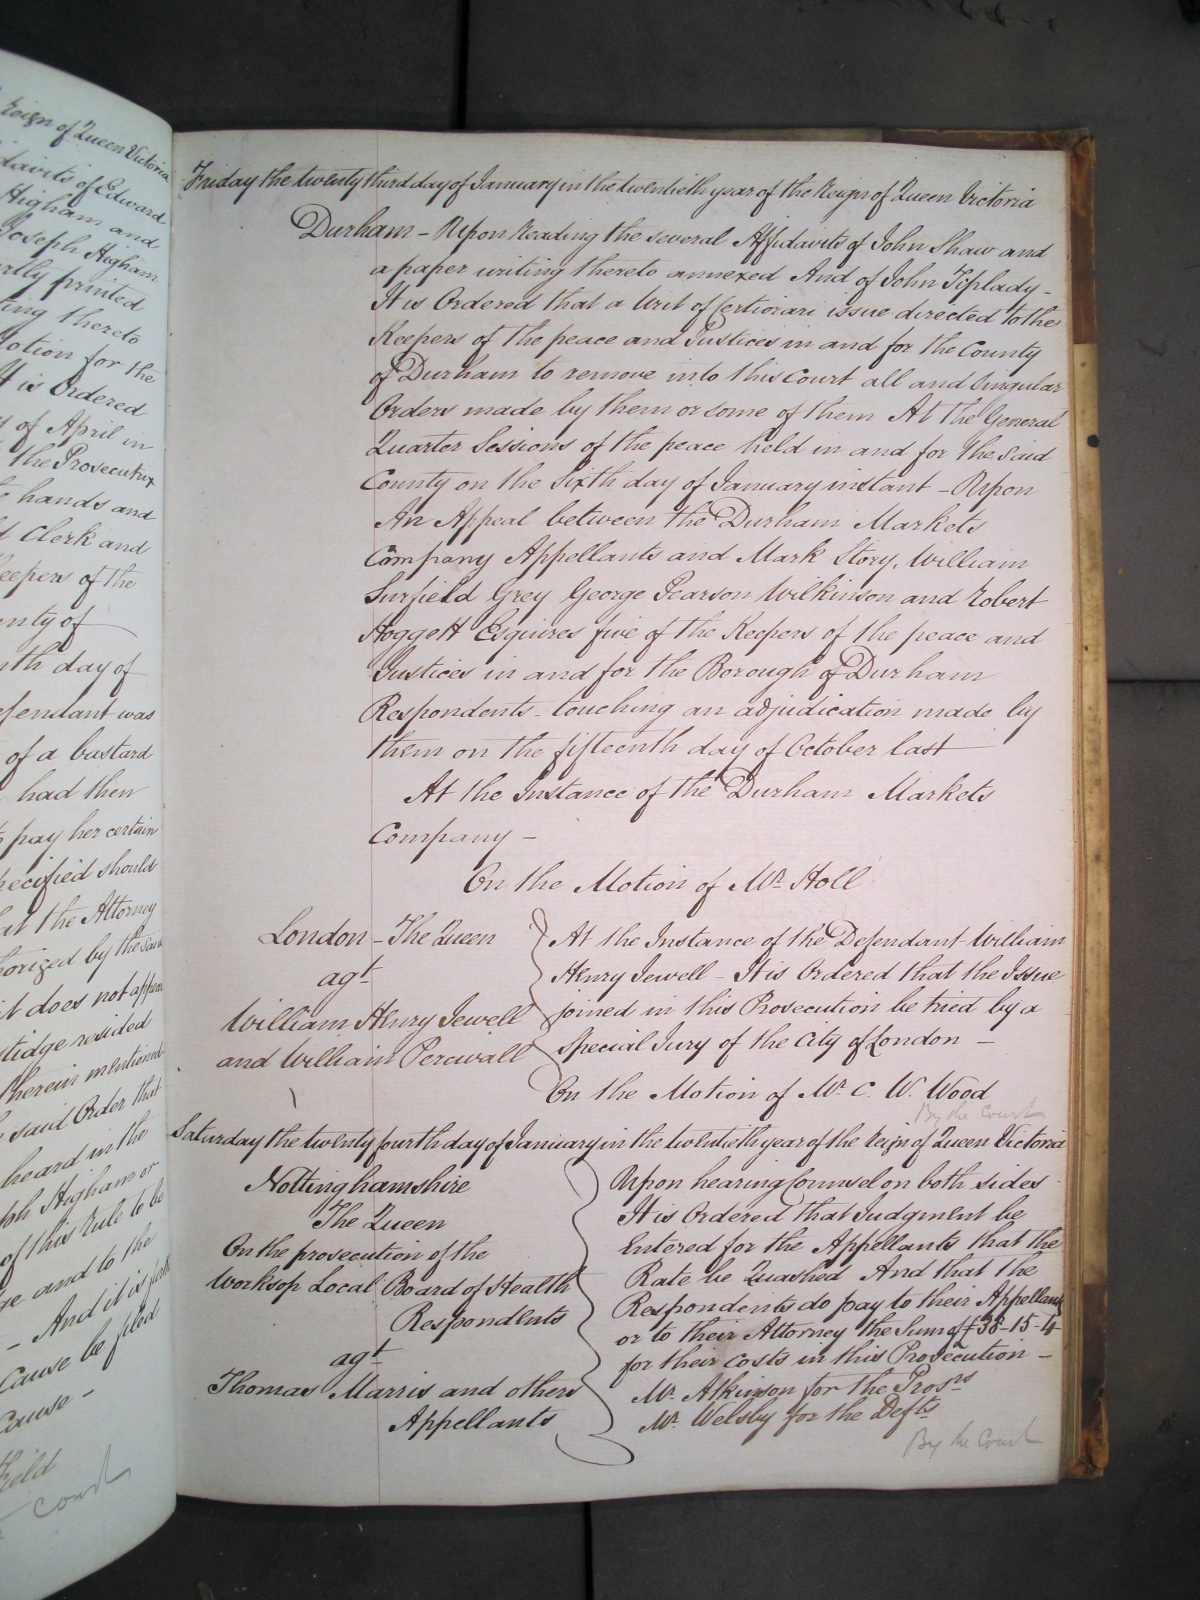 Reign of Queen Victoria
davits of Edward
Higham and
Joseph Higham
rtly printed
ting thereto
otion for the
It is Ordered
of April in
the Prosecutrix
hands and
Clerk and
eepers of the
nty of
nth day of
efendant was
of a bastard
had then
to pay her certain
pecified should
at the Attorney
horized by the said
it does not appear
tidge resided
therein mentioned
said Order that
heard in the
ph Higham or
of this Rule to be
ge and to the
And it is
Cause be filed
Cause -
Field
Court
Friday the twenty third day of January in the twentieth year of the Reign of Queen Victoria
Durham - Upon Reading the several Affidavits of John Shaw and
a paper writing thereto annexed And of John Tiplady -
It is Ordered that a Writ of Certiorari issue directed to the
Keepers of the peace and Justices in and for the County
of Durham to remove into this Court all and singular
Orders made by them or some of them At the General
Quarter Sessions of the peace held in and for the said
County on the Sixth day of January instant - Upon
An Appeal between the Durham Markets
Company Appellants and Mark Story, William
Surfield Grey George Pearson Wilkinson and Robert
Hoggett Esquires five of the Keepers of the peace and
Justices in and for the Borough of Durham
Respondents - touching an adjudication made by
them on the fifteenth day of October last
At the Instance of the Durham Markets
Company -
On the Motion of Mr. Holl
London - The Queen
agt
William Henry Jewell
and William Percivall
At the Instance of the Defendant William
Henry Jewell - It is Ordered that the Issue
joined in this Prosecution be tried by a
Special Jury of the City of London -
On the Motion of Mr. C. W. Wood
By the Court
Saturday the twenty fourth day of January in the twentieth year of the Reign of Queen Victoria
Nottinghamshire
The Queen
On the prosecution of the
Worksop Local Board of Health
Respondents
agt
Thomas Marris and others
Appellants
Upon hearing Counsel on both sides
It is Ordered that Judgment be
Entered for the Appellants that the
Rate be Quashed And that the
Respondents do pay to their Appellants
or to their Attorney the Sum of £38-15-4
for their costs in this Prosecution -
Mr. Atkinson for the Prosrs
Mr. Welsby for the Defts
By the Court